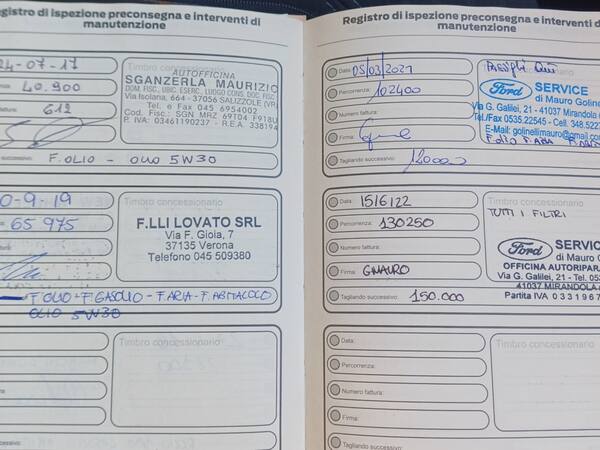 egistro di ispezione preconsegna e interventi di
manutenzione
24-07-17
Timbro concessionario
40.900
AUTOFFICINA
SGANZERLA MAURIZIO
DOM. FISC., UBIC. ESERC., LUOGO CONS. DOC. FISC.
Via Isolana, 664 - 37056 SALIZZOLE (VR)
Tel. e Fax 045 6954002
Cod. Fisc.: SGN MRZ 69T04 F918U
P. IVA: 03461190237 - R.E.A. 338194
fattura:
612
successivo:
F. OLIO - OLIO 5W30
0-9-19
Timbro concessionario
65 975
F.LLI LOVATO SRL
Via F. Gioia, 7
37135 Verona
Telefono 045 509380
F. OLIO - F. GASOLIO - F. ARIA - F. ABITACOLO
OLIO 5W30
Timbro concessionario
fattura:
successivo:
Registro di ispezione preconsegna e interventi di
manutenzione
Data: 05/03/2021
Percorrenza: 102400
Numero fattura:
Firma:
Tagliando successivo: 120000
Ford SERVICE
di Mauro Golinelli
Via G. Galilei, 21 - 41037 Mirandola
Tel./Fax 0535.22545 - Cell. 348.5227
E-Mail: golinellimauro@gmail.com
F. olio F. ARIA
Data: 15/6/22
Percorrenza: 130250
Numero fattura:
Firma: GMAURO
Tagliando successivo: 150.000
TUTTI I FILTRI
Ford SERVIC
di Mauro G
OFFICINA AUTORIPARA
Via G. Galilei, 21 - Tel. 053
41037 MIRANDOLA
Partita IVA 0331967
Data:
Timbro concessionario
Percorrenza:
Numero fattura:
Firma:
Tagliando successivo: